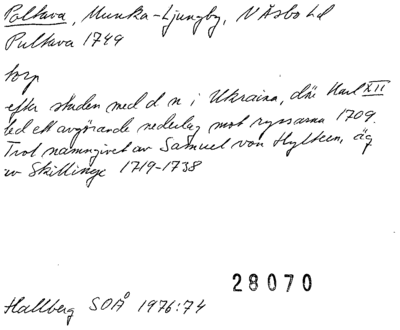 Poltava, Munka-Ljungby, N Åsbo hd
Pultava 1749
torp
efter staden med d n i Ukraina, där Karl XII
led ett avgörande nederlag mot ryssarna 1709.
Trol namngivet av Samuel von Hylteen, äg
av Skillinge 1719-1738
28070
Hallberg SOÅ 1976:74